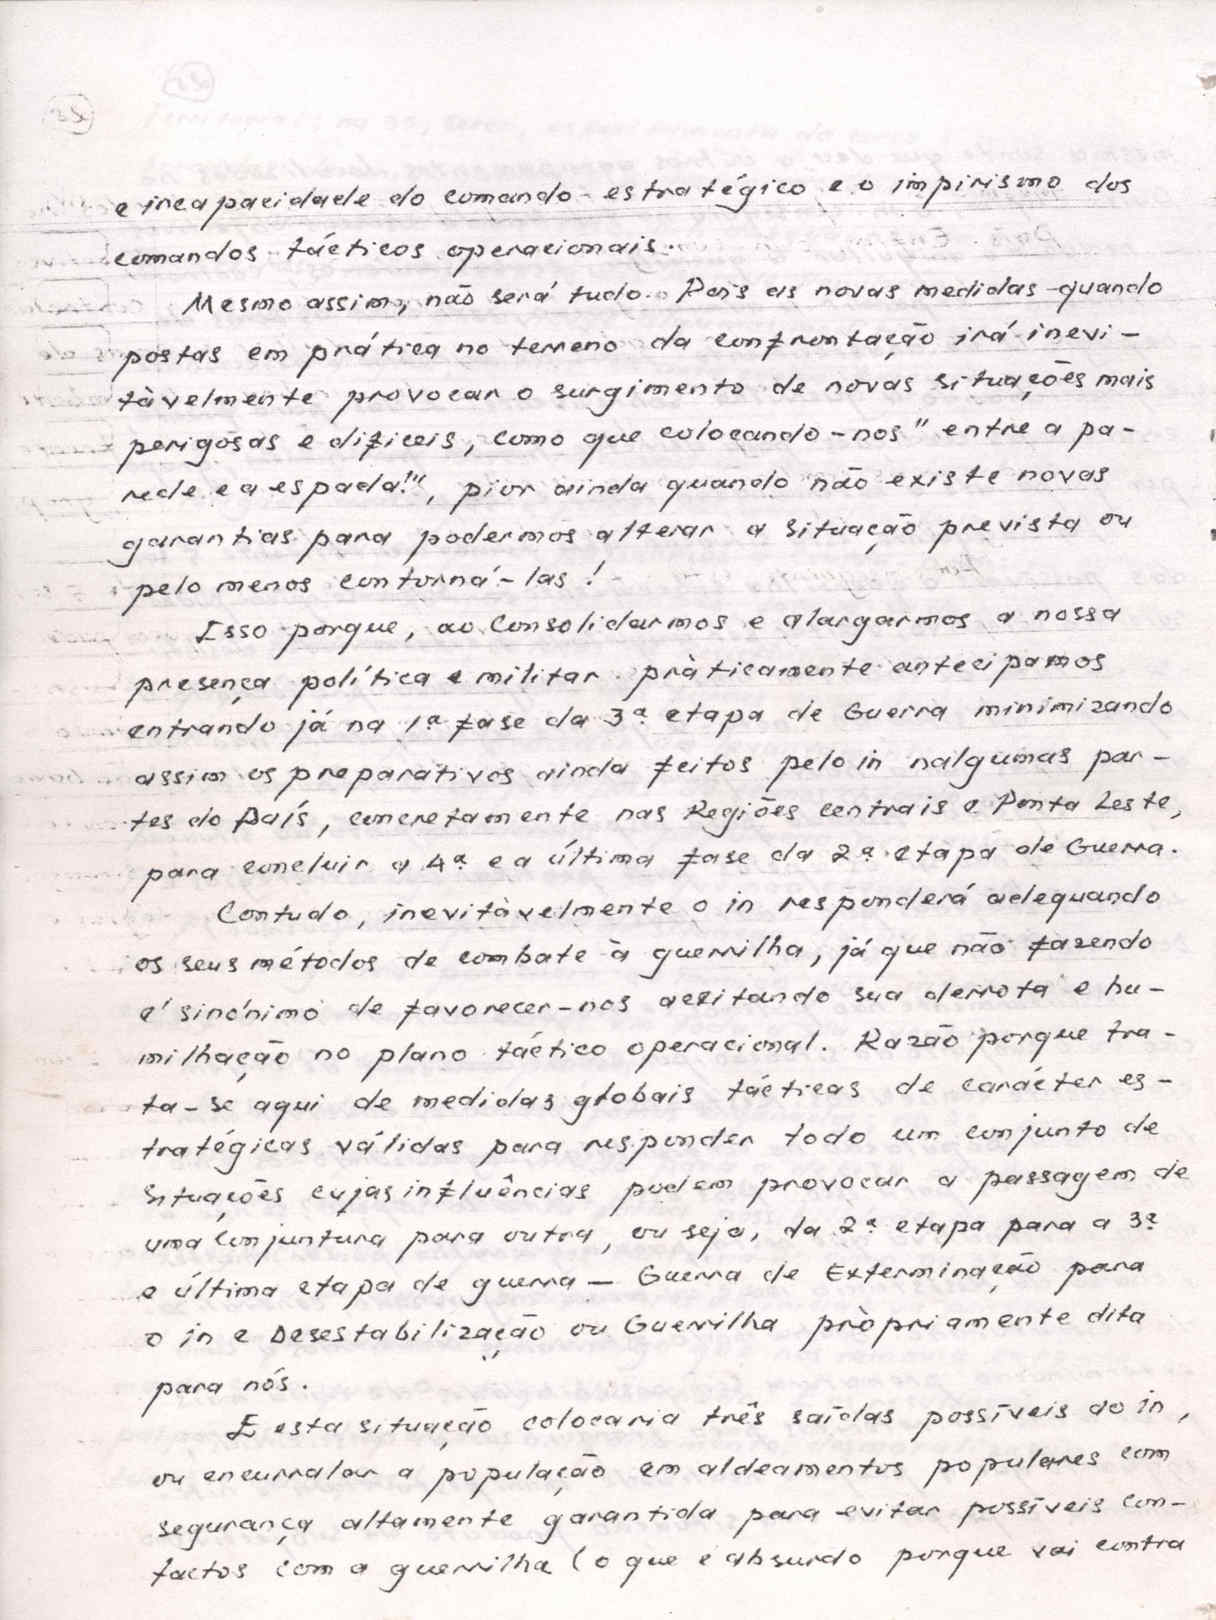 e incapacidade do comando-estratégico e o impirismo dos
comandos tácticos operacionais.
Mesmo assim, não será tudo. Pois as novas medidas quando
postas em prática no terreno da confrontação irá inevi-
tàvelmente provocar o surgimento de novas situações mais
perigosas e difíceis, como que colocando-nos "entre a pa-
rede e a espada!", pior ainda quando não existe novas
garantias para podermos alterar a situação prevista ou
pelo menos contorná-las!
Isso porque, ao consolidarmos e alargarmos a nossa
presença política e militar pràticamente antecipamos
entrando já na 1ª fase da 3ª etapa de Guerra minimizando
assim os preparativos ainda feitos pelo in nalgumas par-
tes do País, concretamente nas Regiões centrais e Ponta Leste,
para concluir a 4ª e a última fase da 2ª etapa de Guerra.
Contudo, inevitàvelmente o in responderá adequando
os seus métodos de combate à guerrilha, já que não fazendo
é sinónimo de favorecer-nos aceitando sua derrota e hu-
milhação no plano táctico operacional. Razão porque tra-
ta-se aqui de medidas globais tácticas de carácter es-
tratégicas válidas para responder todo um conjunto de
situações cujas influências podem provocar a passagem de
uma conjuntura para outra, ou seja, da 2ª etapa para a 3ª
e última etapa de guerra — Guerra de Exterminação para
o in e Desestabilização ou Guerrilha pròpriamente dita
para nós.
E esta situação colocaria três saídas possíveis ao in,
ou encurralar a população em aldeamentos populares com
segurança altamente garantida para evitar possíveis con-
tactos com a guerrilha (o que é absurdo porque vai contra